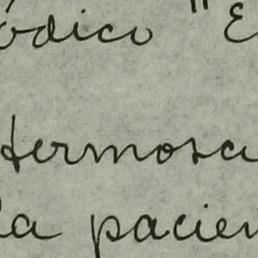 ódico "E
Hermosa
la pacien